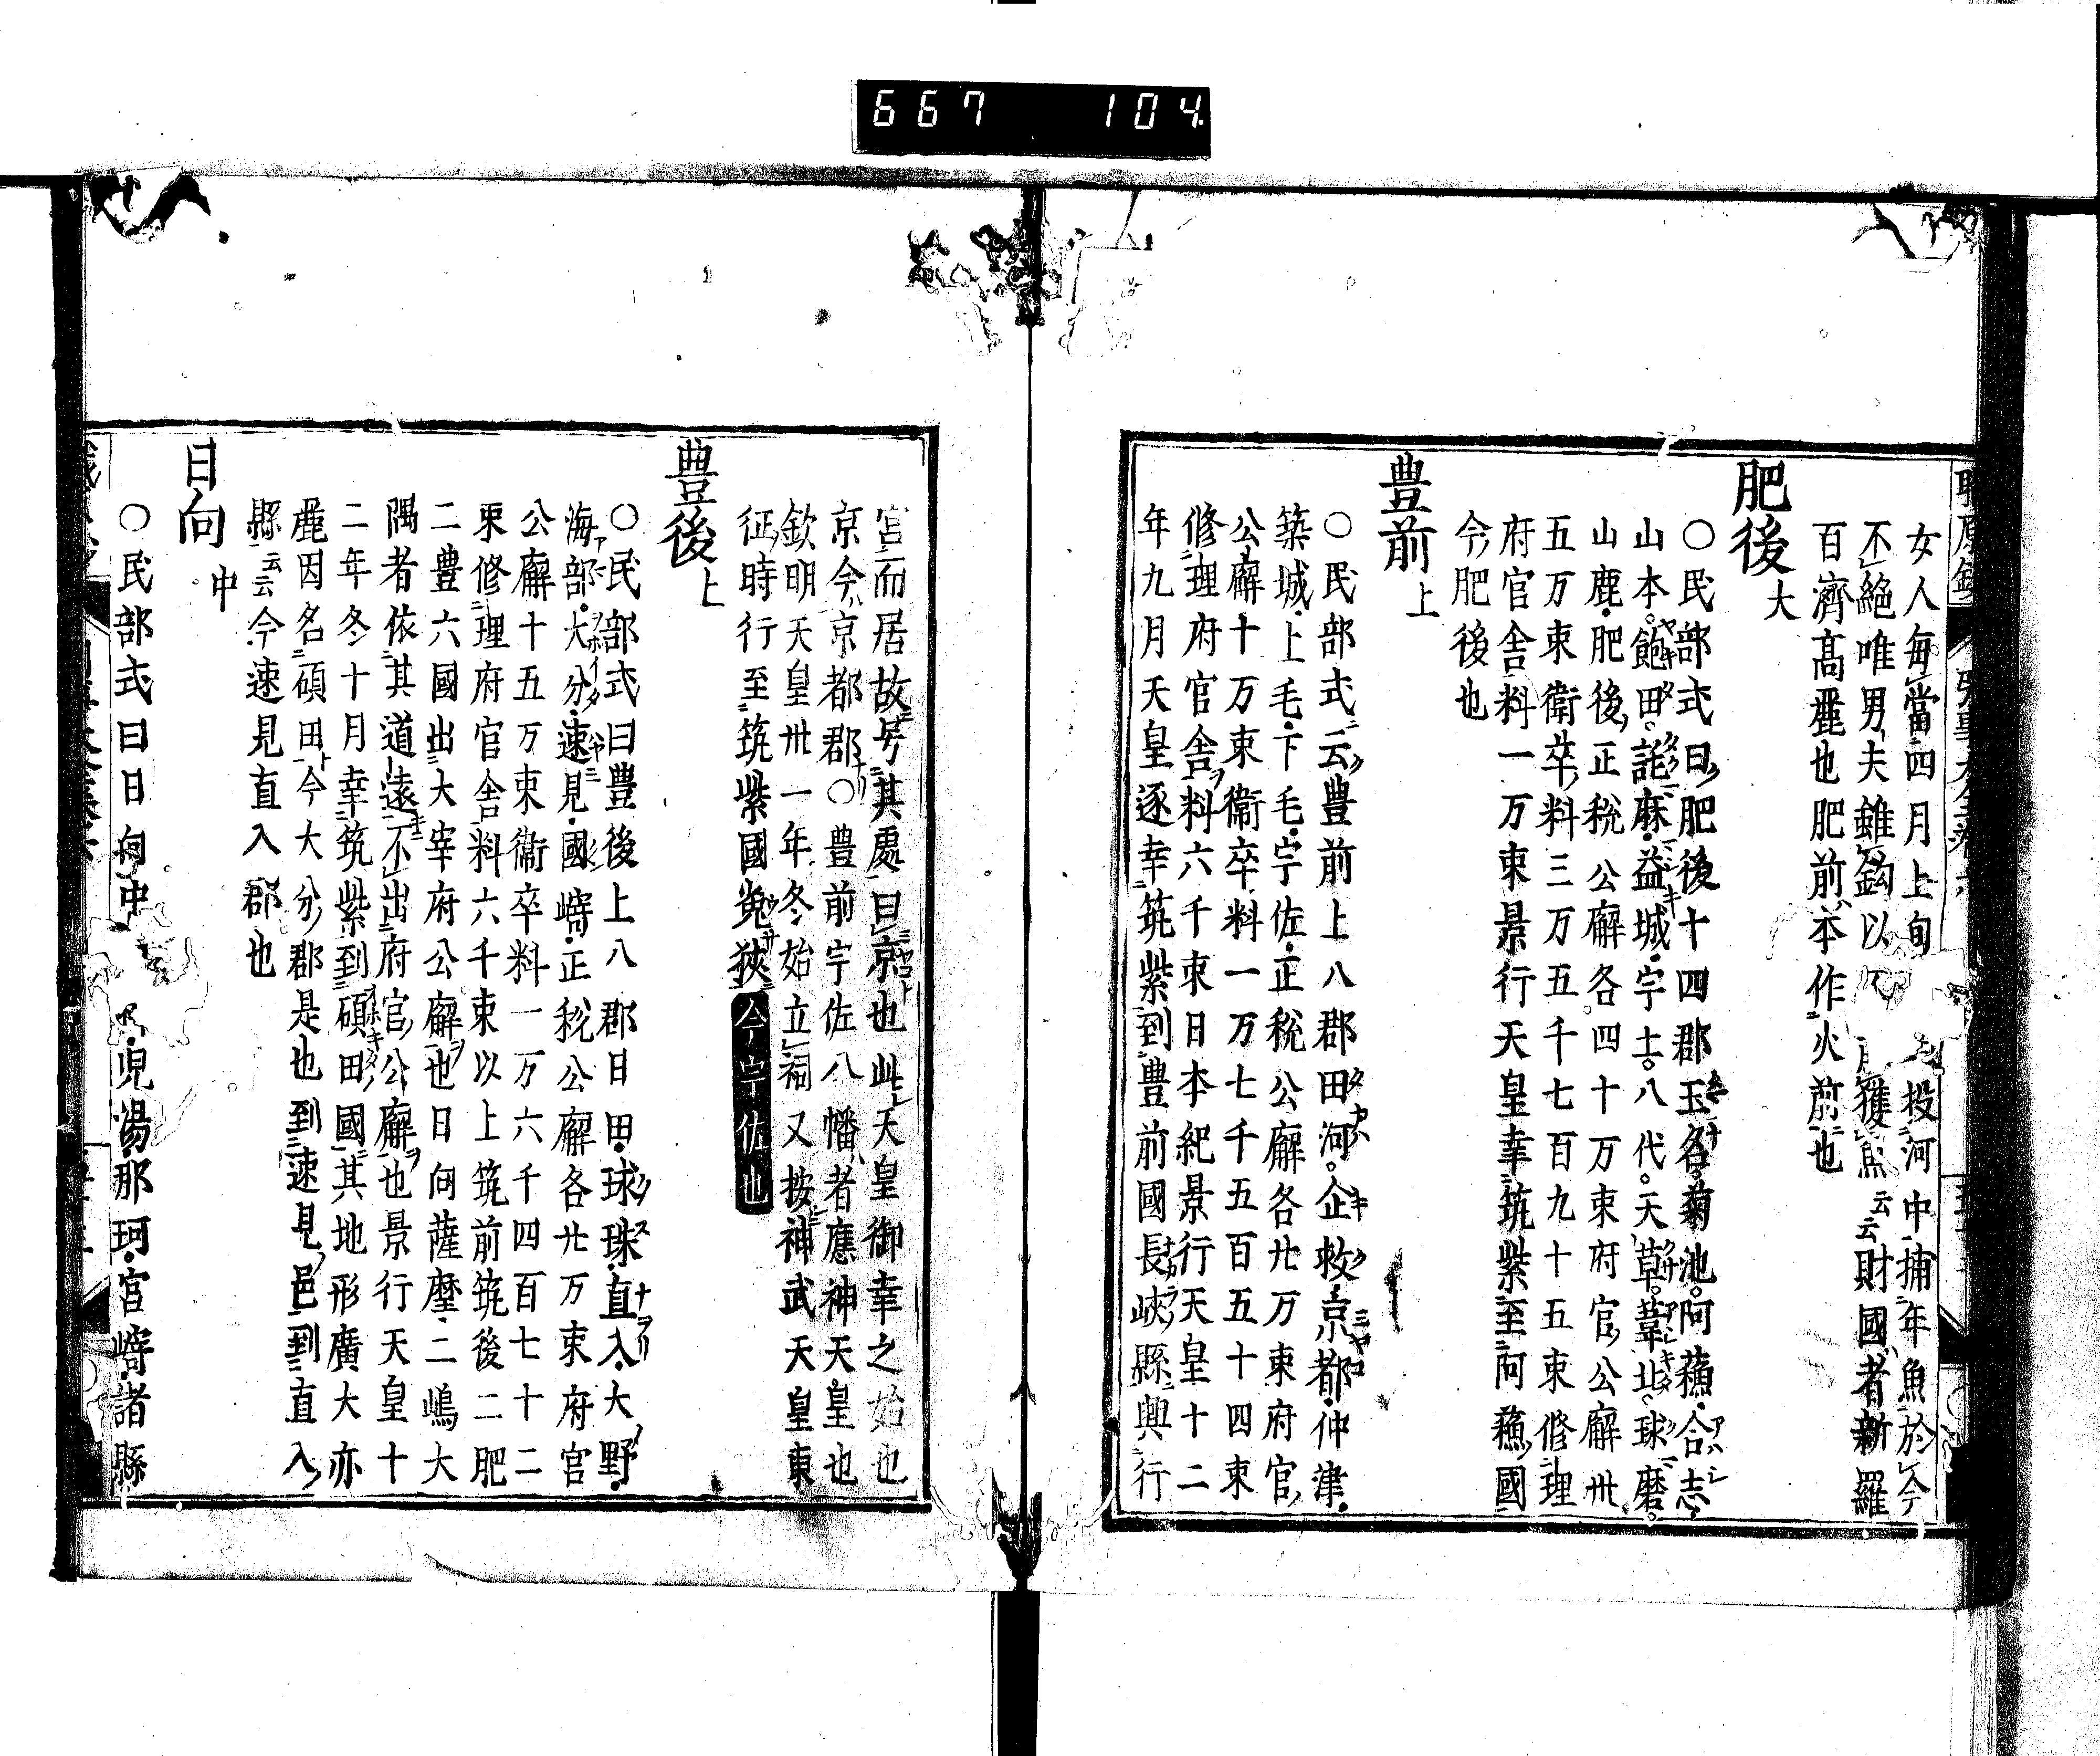 667 104
女人毎當四月上旬投河中捕年魚於今
不絶唯男夫雖鈎以獲魚云云財國者新羅
百濟髙麗也肥前本作火前也
肥後大
〇民部式曰肥後十四郡玉名菊池阿蘓合志
山本飽田詫麻益城宇土八代天草葦北球磨
山鹿肥後正税公廨各四十万束府官公廨卅
五万束衛卒料三万五千七百九十五束修理
府官舎料一万束景行天皇幸筑紫至阿蘓國
今肥後也
豊前上
〇民部式云豊前上八郡田河企救京都仲津
築城上毛下毛宇佐正税公廨各廿万束府官
公廨十万束衞卒料一万七千五百五十四束
修理府官舎料六千束日本紀景行天皇十二
年九月天皇逐幸筑紫到豊前國長峽縣興行
宮而居故号其處曰京也此天皇御幸之始也
京今京都郡〇豊前宇佐八幡者應神天皇也
欽明天皇卅一年冬始立祠又按神武天皇東
征時行至筑紫國菟狹今宇佐也
豊後上
〇民部式曰豊後上八郡日田球珠直入大野
海部大分速見國﨑正税公廨各廿万束府官
公廨十五万束衞卒料一万六千四百七十二
束修理府官舎料六千束以上筑前筑後二肥
二豊六國出大宰府公廨也日向薩摩二嶋大
隅者依其道遠不出府官公廨也景行天皇十
二年冬十月幸筑紫到碩田國其地形廣大亦
麗因名碩田今大分郡是也到速見邑到直入
縣云云今速見直入郡也
日向中
〇民部式曰日向中児湯那珂宮﨑諸縣